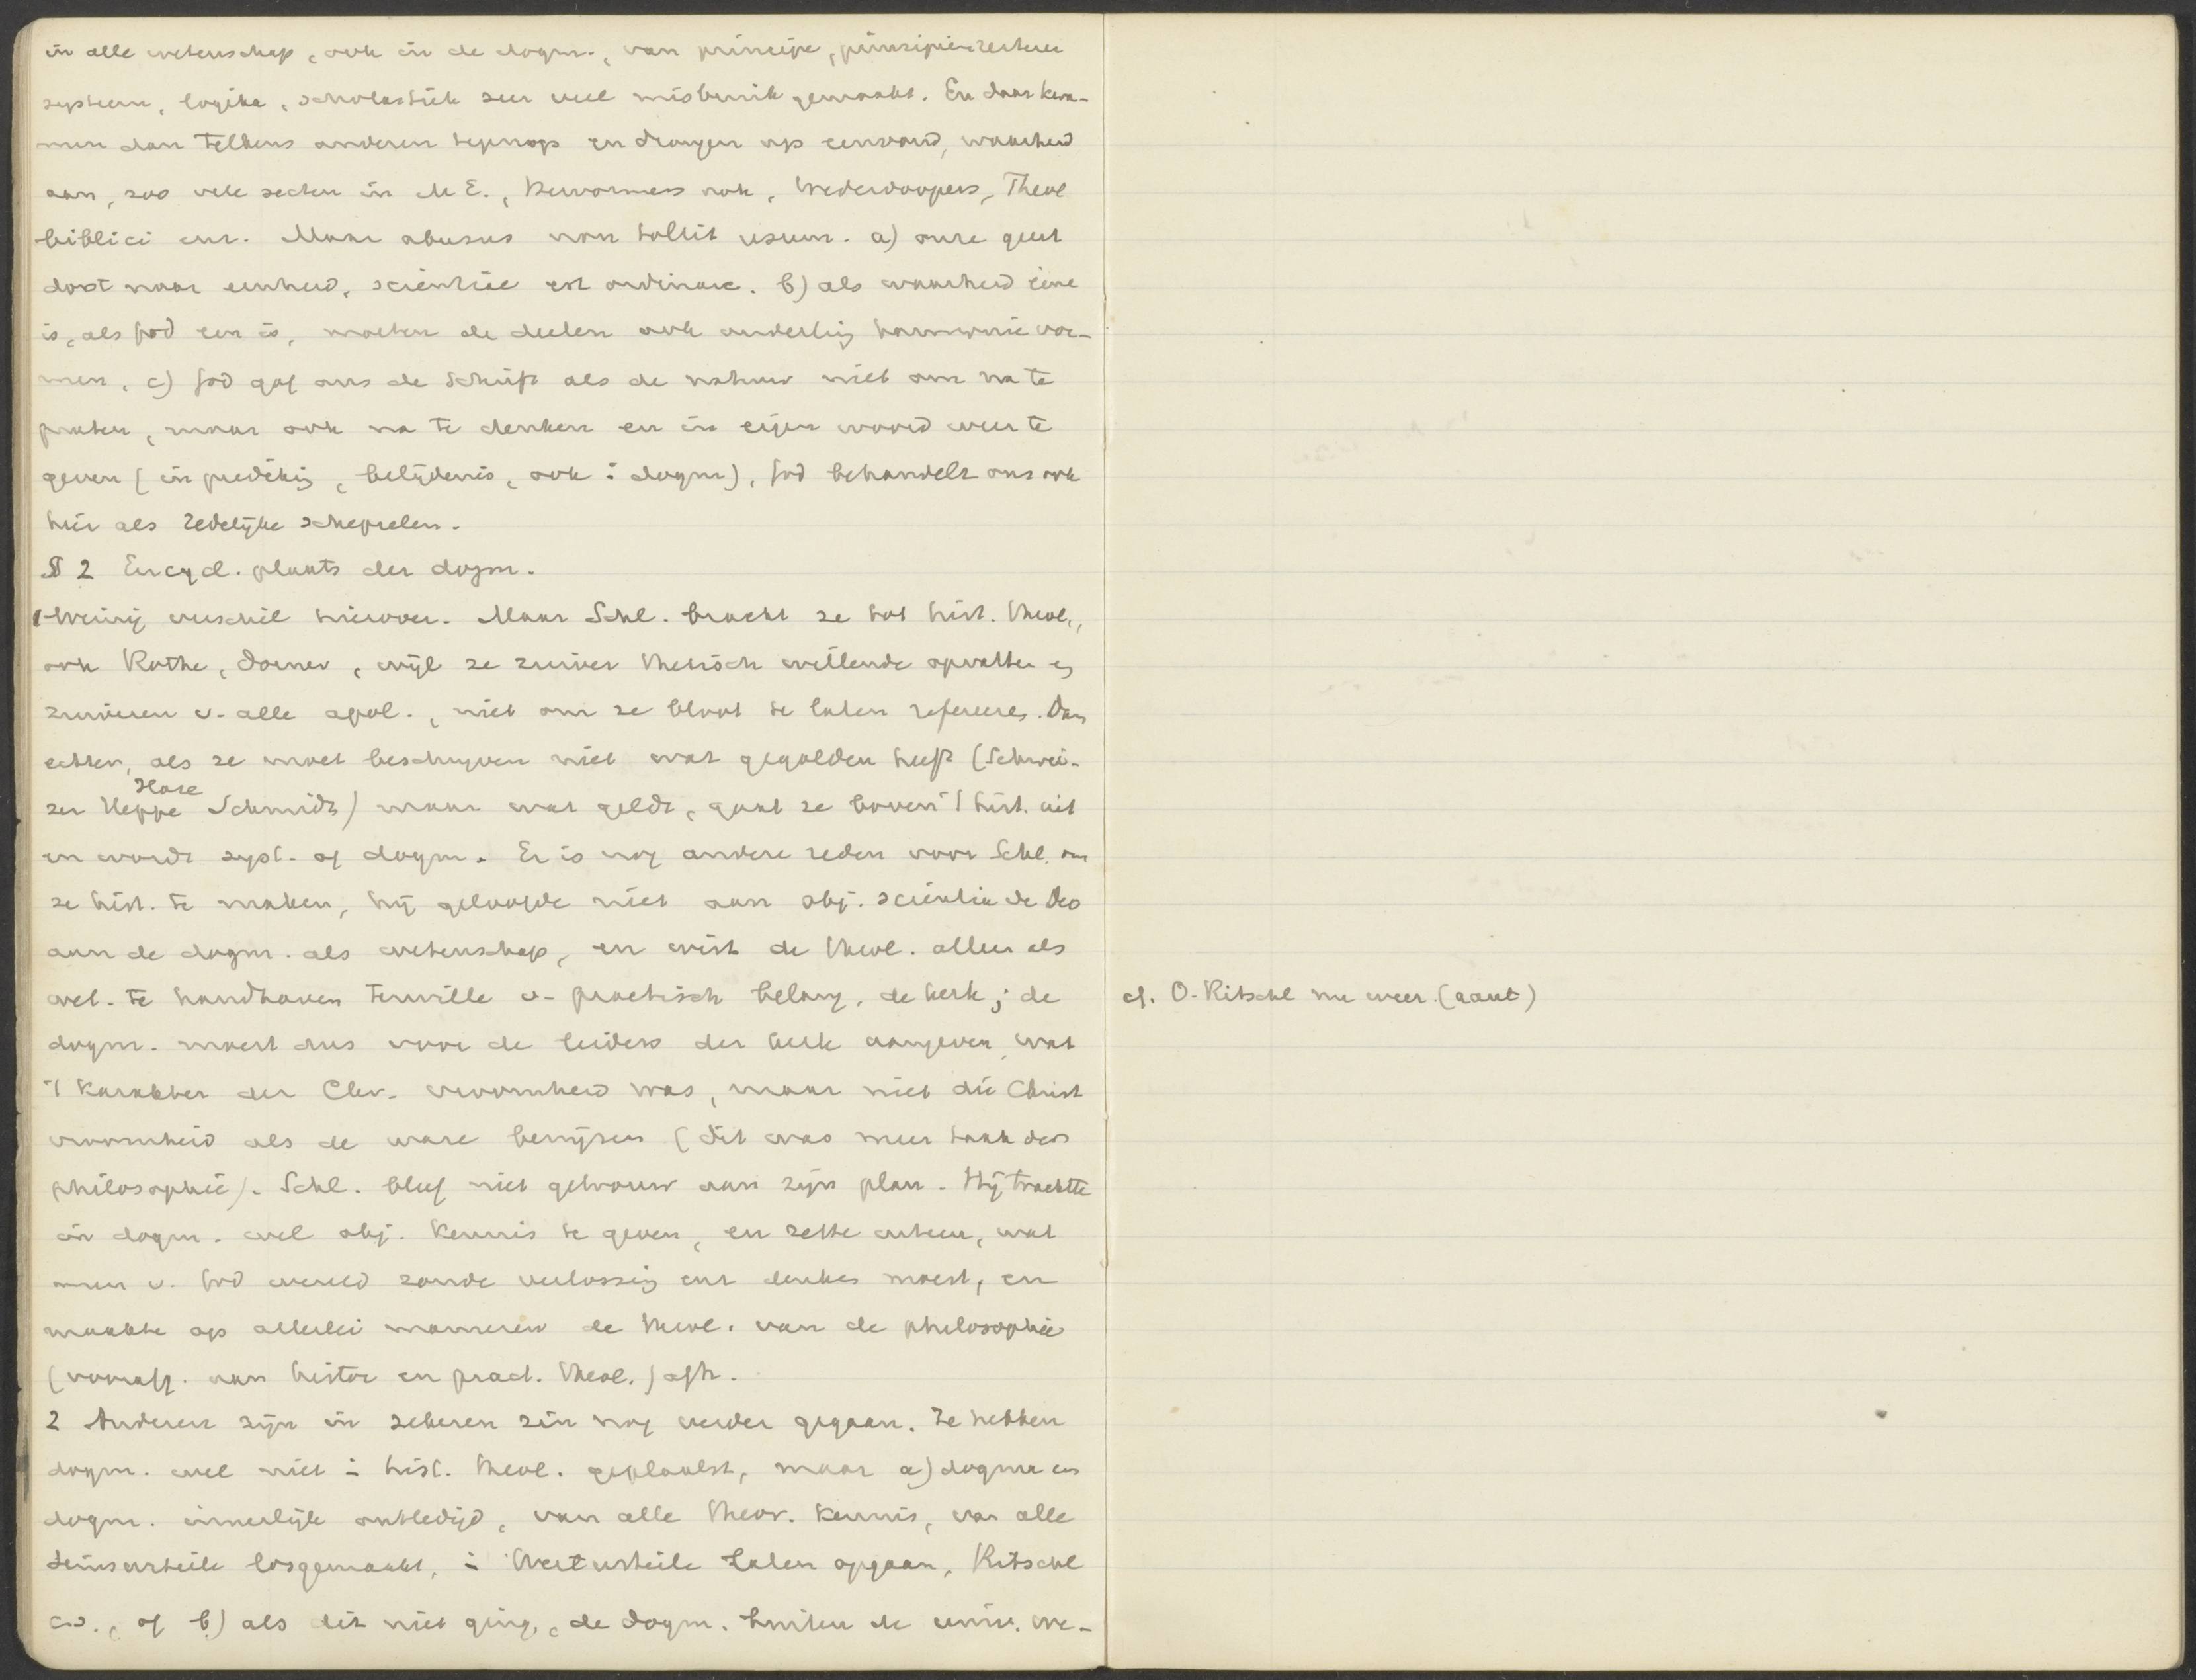 in alle wetenschap, ook in de dogm., van principe, prinzipienreiterei
systeem, logika, scholastiek zeer veel misbruik gemaakt. En daar kwa-
men dan telkens anderen tegenop en drongen op eenvoud, waarheid
aan, zoo vele secten in M E., Hervormers ook, Wederdoopers, Theol
biblici enz. Maar abusus non tollit usum. a) onze geest
dorst naar eenheid, scientiae est ordinare. b) als waarheid eene
is, als God een is, moeten de deelen ook onderling harmonie vor-
men, c) God gaf ons de Schrift als de natuur niet om na te
praten, maar ook na te denken en in eigen woord weer te
geven (in prediking, belijdenis, ook i dogm), God behandelt ons ook
hier als redelijke schepselen.
§ 2 Encycl. plaats der dogm.
1 Weinig verschil hierover. Maar Schl. bracht ze tot hist. theol.,
ook Rothe, Dorner, wijl ze zuiver thetisch willende opvatten en
zuiveren v. alle apol., niet om ze bloot te laten refereeren. Dan
echter, als ze moet beschrijven niet wat gegolden heeft (Schwei-
zer Heppe Hase Schmidt) maar wat geldt, gaat ze boven 't hist. uit
en wordt syst. of dogm. Er is nog andere reden voor Schl. om
ze hist. te maken, hij geloofde niet aan obj. scientia de Deo
aan de dogm. als wetenschap, en wist de theol. alleen als
wet. te handhaven terwille v. practisch belang, de kerk; de
dogm. moest dus voor de leiders der kerk aangeven, wat
't karakter der Chr. vroomheid was, maar niet die Christ
vroomheid als de ware bewijzen (dit was meer taak der
philosophie). Schl. bleef niet getrouw aan zijn plan. Hij trachtte
in dogm. wel obj. kennis te geven, en zette uiteen, wat
men v. God wereld zonde verlossing enz denken moest, en
maakte op allerlei manieren de theol. van de philosophie
(voorafg. aan histor en pract. theol.) afh.
2 Anderen zijn in zekeren zin nog verder gegaan. Ze hebben
dogm. wel niet i hist. theol. geplaatst, maar a) dogma en
dogm. innerlijk ontledigd, van alle theor. kennis, van alle
Seinsurteile losgemaakt, i Werturteile laten opgaan, Ritschl
cs., of b) als dit niet ging, de dogm. buiten de univ. we-
cf. O. Ritschl nu weer (aant)